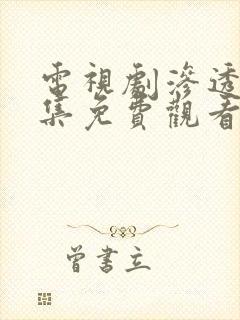 電視劇滲透
集免費觀看
曾書立